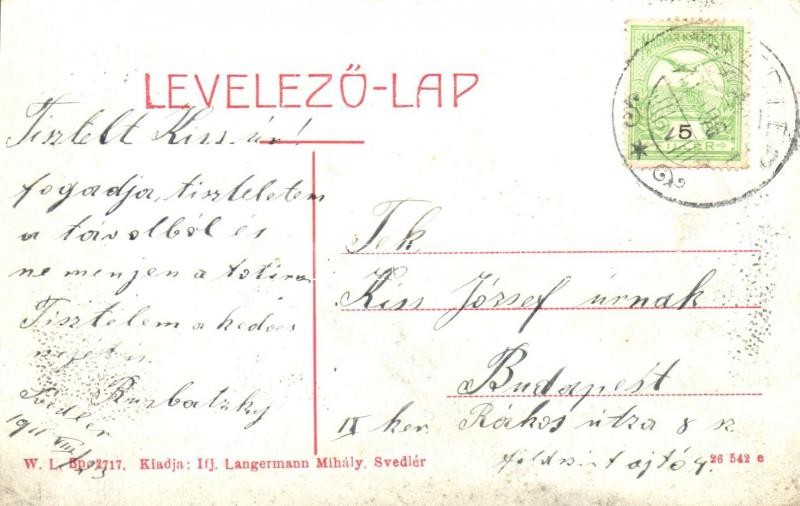 LEVELEZŐ-LAP
MAGYAR KIR. POSTA
5
FILLÉR
Tisztelt Kiss úr!
fogadja tiszteletem
a távolból és
ne menjen a
Tisztelem a kedves
nejét is.
Svedlér
1911 VIII/23
Tek.
Kiss József úrnak
Budapest
IX ker. Rákos útza 8 sz.
földszint ajtó 4.
W. L. Bp. 2717. Kiadja: Ifj. Langermann Mihály, Svedlér
26 542 e